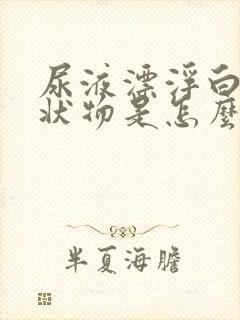 尿液漂浮白
状物是怎麼
半夏海膽